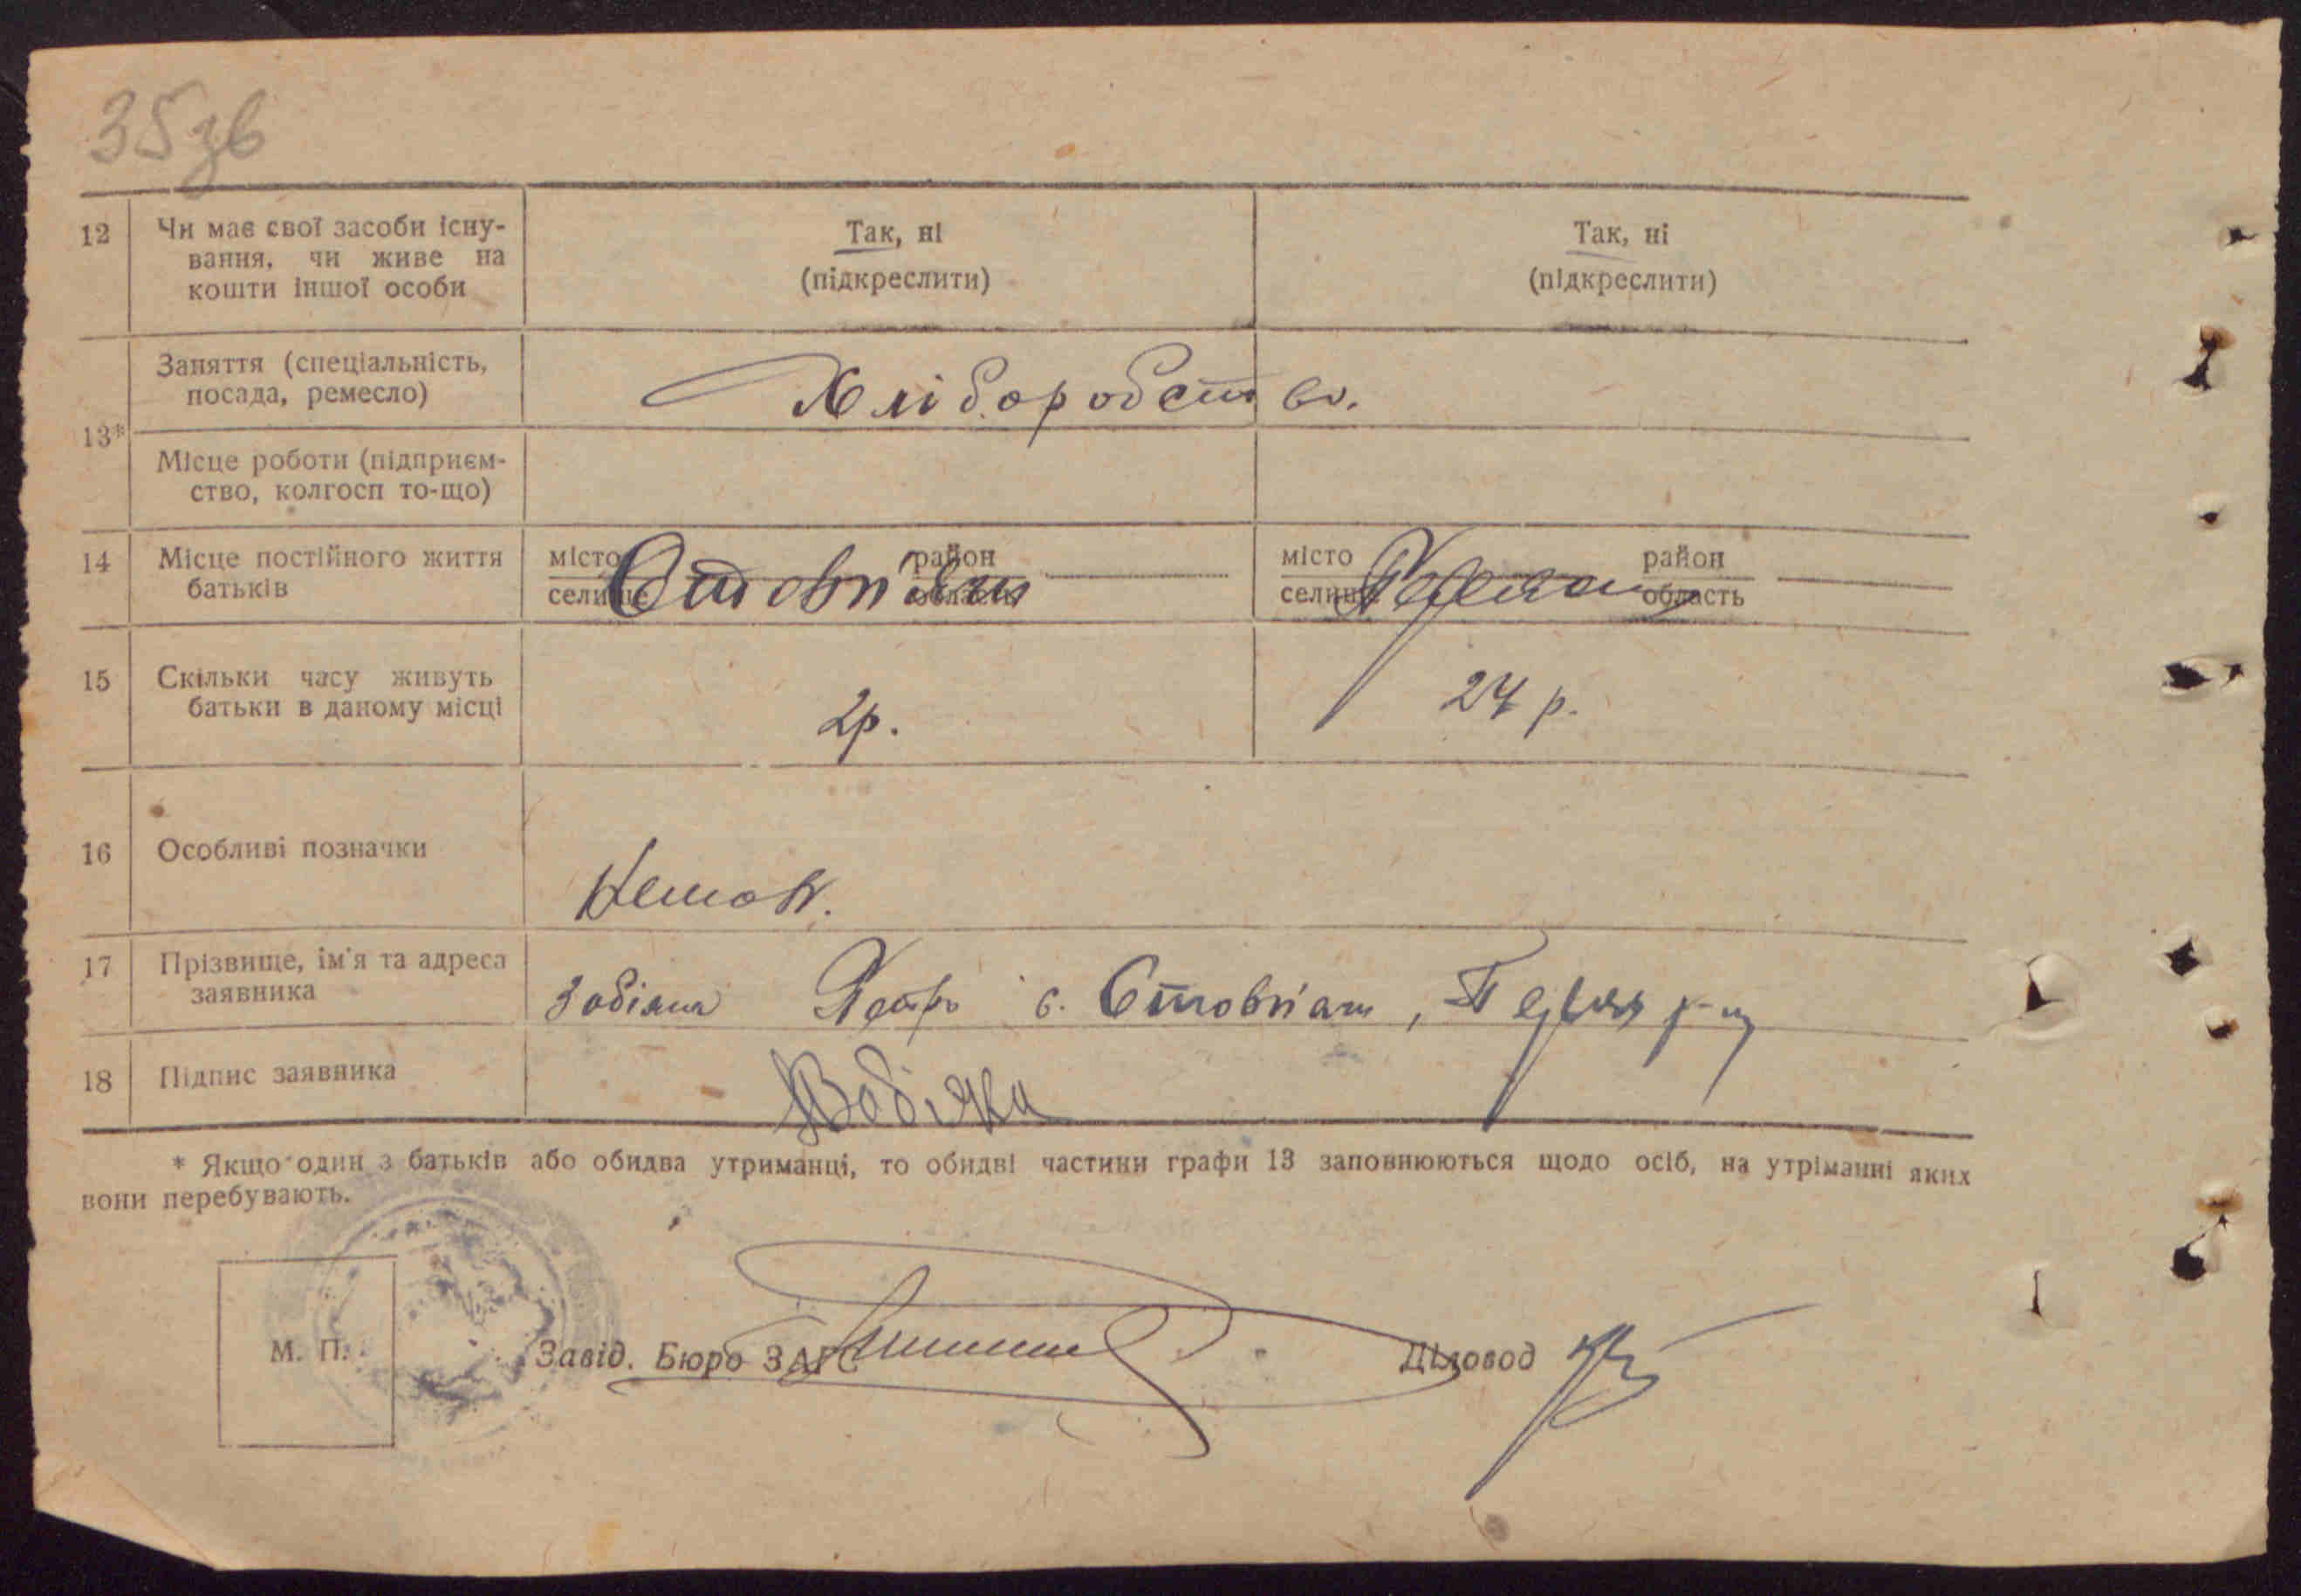 35 зв
12 Чи має свої засоби існу-
вання, чи живе на
кошти іншої особи
Так, ні
(підкреслити)
Так, ні
(підкреслити)
13*
Заняття (спеціальність,
посада, ремесло)
Хліборобство.
Місце роботи (підприєм-
ство, колгосп то-що)
14 Місце постійного життя
батьків
місто район
селище область
Стовп'яги
місто район
селище область
15 Скільки часу живуть
батьки в даному місці
2р.
24 р.
16 Особливі позначки
Немає.
17 Прізвище, ім'я та адреса
заявника
Зобіяка Петро с. Стовп'яги,
18 Підпис заявника
* Якщо один з батьків або обидва утриманці, то обидві частини графи 13 заповнюються щодо осіб, на утріманні яких
вони перебувають.
М. П.
Завід. Бюро ЗАГС
Діловод